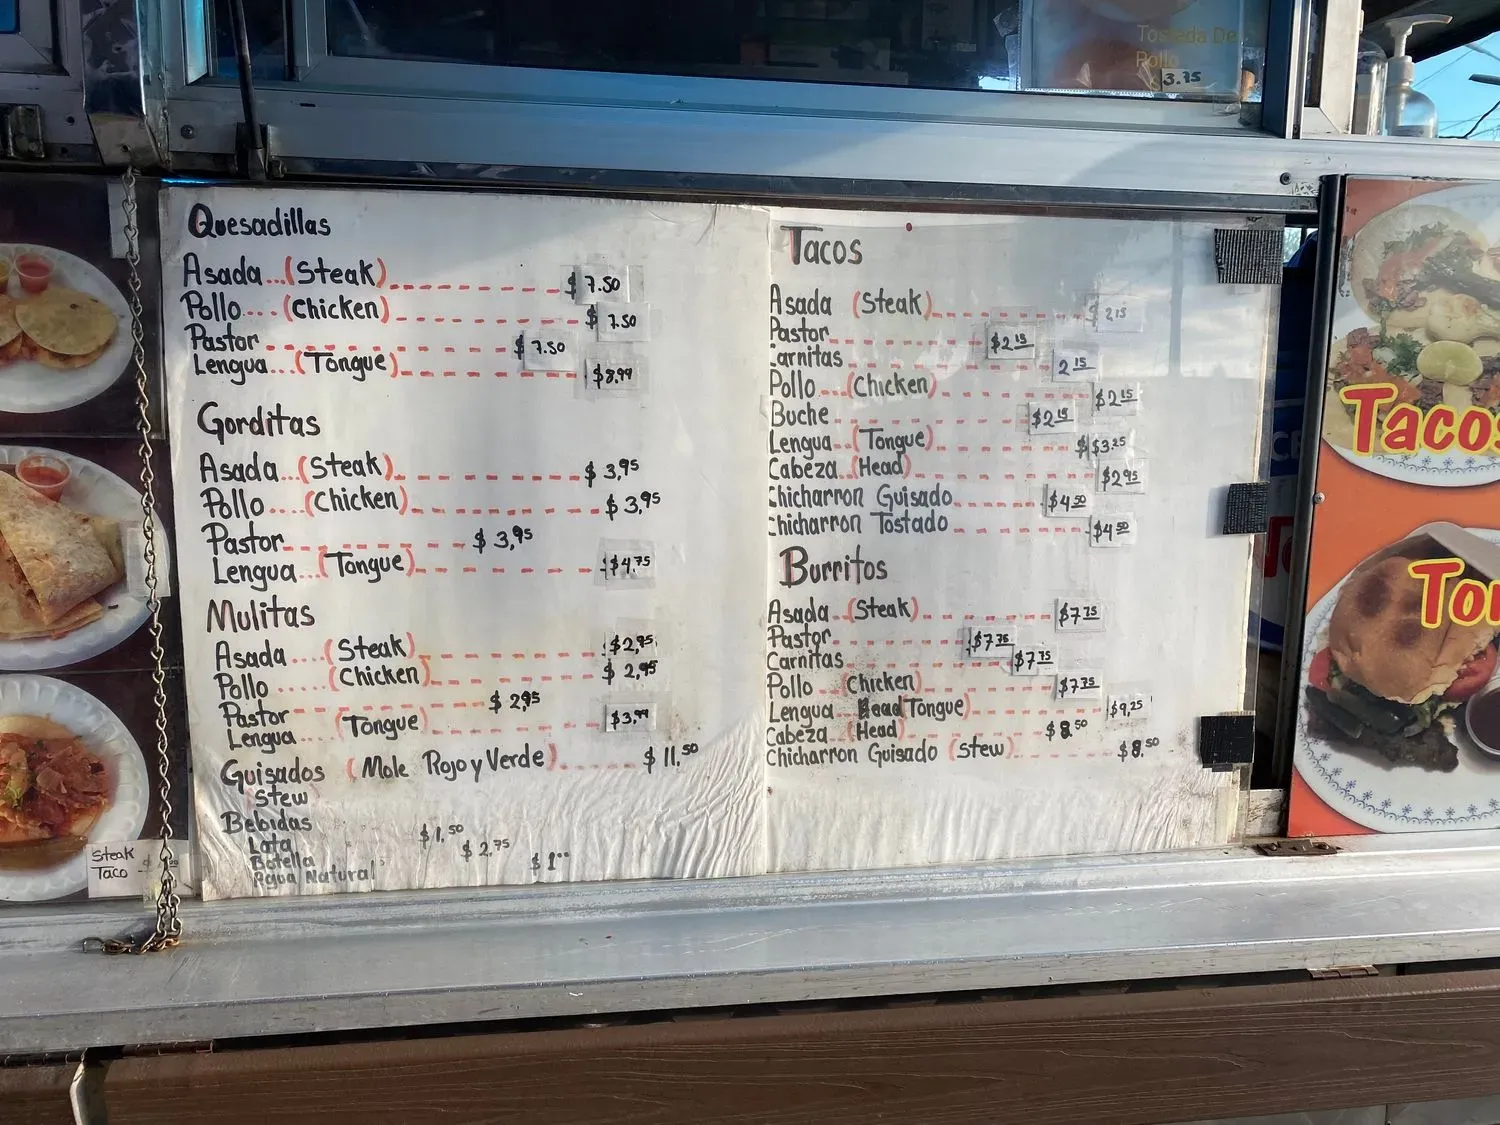 Tostada De
Pollo
$3.75
Quesadillas
Asada...(Steak) $7.50
Pollo....(Chicken) $7.50
Pastor $7.50
Lengua...(Tongue) $8.99
Gorditas
Asada...(Steak) $3,95
Pollo....(Chicken) $3,95
Pastor $3,95
Lengua...(Tongue) $4.75
Mulitas
Asada....(Steak) $2,95
Pollo......(Chicken) $2,95
Pastor $2,95
Lengua....(Tongue) $3.99
Guisados (Mole Rojo y Verde) $11.50
Stew
Bebidas
Lata $1.50
Botella $2.75
Agua Natural $1
Tacos
Asada (Steak) 2.15
Pastor $2.15
Carnitas 2.15
Pollo...(Chicken) $2.15
Buche $2.15
Lengua...(Tongue) $3.25
Cabeza...(Head) $2.95
Chicharron Guisado $4.50
Chicharron Tostado $4.50
Burritos
Asada...(Steak) $7.75
Pastor $7.75
Carnitas $7.75
Pollo...(Chicken) $7.75
Lengua Tongue) $9.25
Cabeza...(Head) $8.50
Chicharron Guisado (Stew) $8.50
Steak
Taco
Tacos
Tor